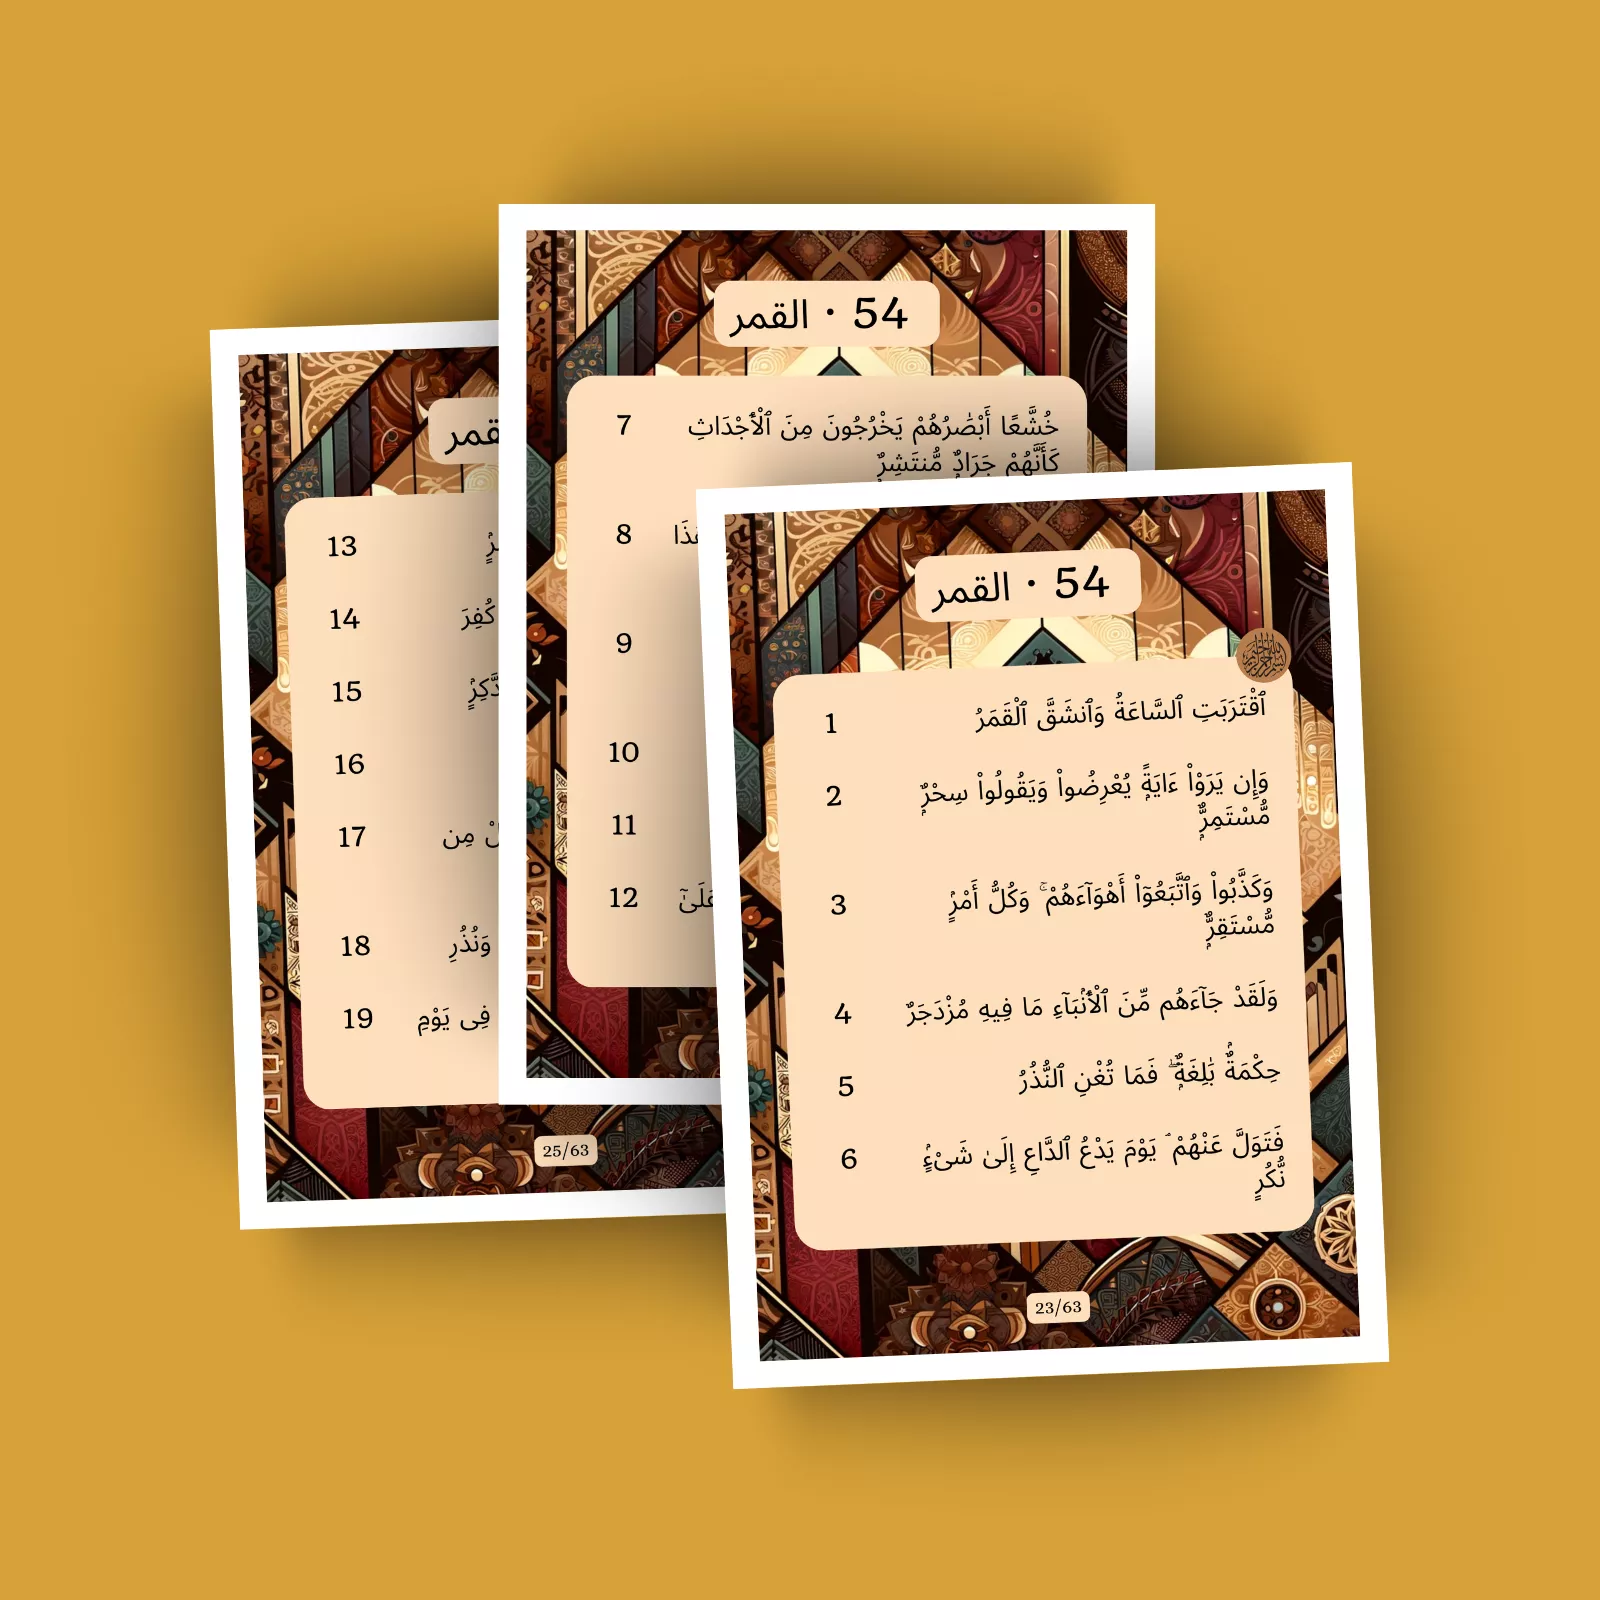 54 • القمر
1 ٱقْتَرَبَتِ ٱلسَّاعَةُ وَٱنشَقَّ ٱلْقَمَرُ
2 وَإِن يَرَوْا۟ ءَايَةًۭ يُعْرِضُوا۟ وَيَقُولُوا۟ سِحْرٌۭ
مُّسْتَمِرٌّۭ
3 وَكَذَّبُوا۟ وَٱتَّبَعُوٓا۟ أَهْوَآءَهُمْ ۚ وَكُلُّ أَمْرٍۢ
مُّسْتَقِرٌّۭ
4 وَلَقَدْ جَآءَهُم مِّنَ ٱلْأَنۢبَآءِ مَا فِيهِ مُزْدَجَرٌ
5 حِكْمَةٌۢ بَٰلِغَةٌۭ ۖ فَمَا تُغْنِ ٱلنُّذُرُ
6 فَتَوَلَّ عَنْهُمْ ۘ يَوْمَ يَدْعُ ٱلدَّاعِ إِلَىٰ شَىْءٍۢ
نُّكُرٍ
23/63
54 • القمر
7 خُشَّعًا أَبْصَٰرُهُمْ يَخْرُجُونَ مِنَ ٱلْأَجْدَاثِ
كَأَنَّهُمْ جَرَادٌۭ مُّنتَشِرٌۭ
8
9
10
11
12
13
14 كُفِرَ
15
16
17 مِن
18 وَنُذُرِ
19 فِى يَوْمِ
25/63